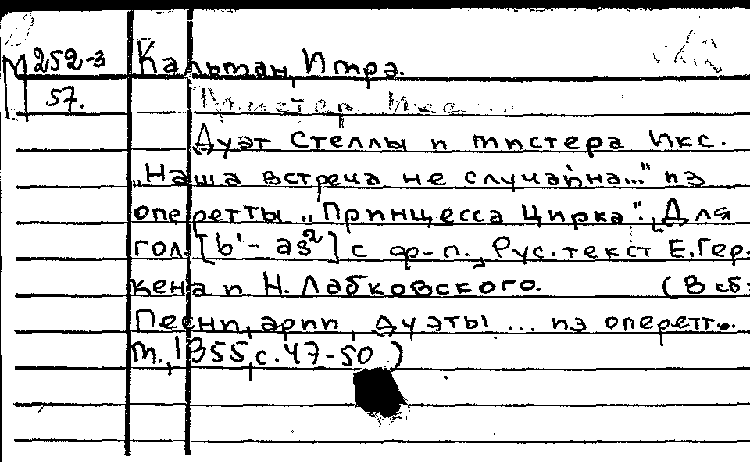 М 252-3 Кальман, Имра.
57. Мистер Икс...
Дуэт Стеллы и мистера Икс.
„Наша встреча не случайна..." из
оперетты „Принцесса Цирка". Для
гол. [b'- as²] с ф-п., Рус. текст Е. Гер-
кена и Н. Лабковского. (В сб:
Песни, арии, дуэты ... из оперетт.
М., 1955, с. 47-50)